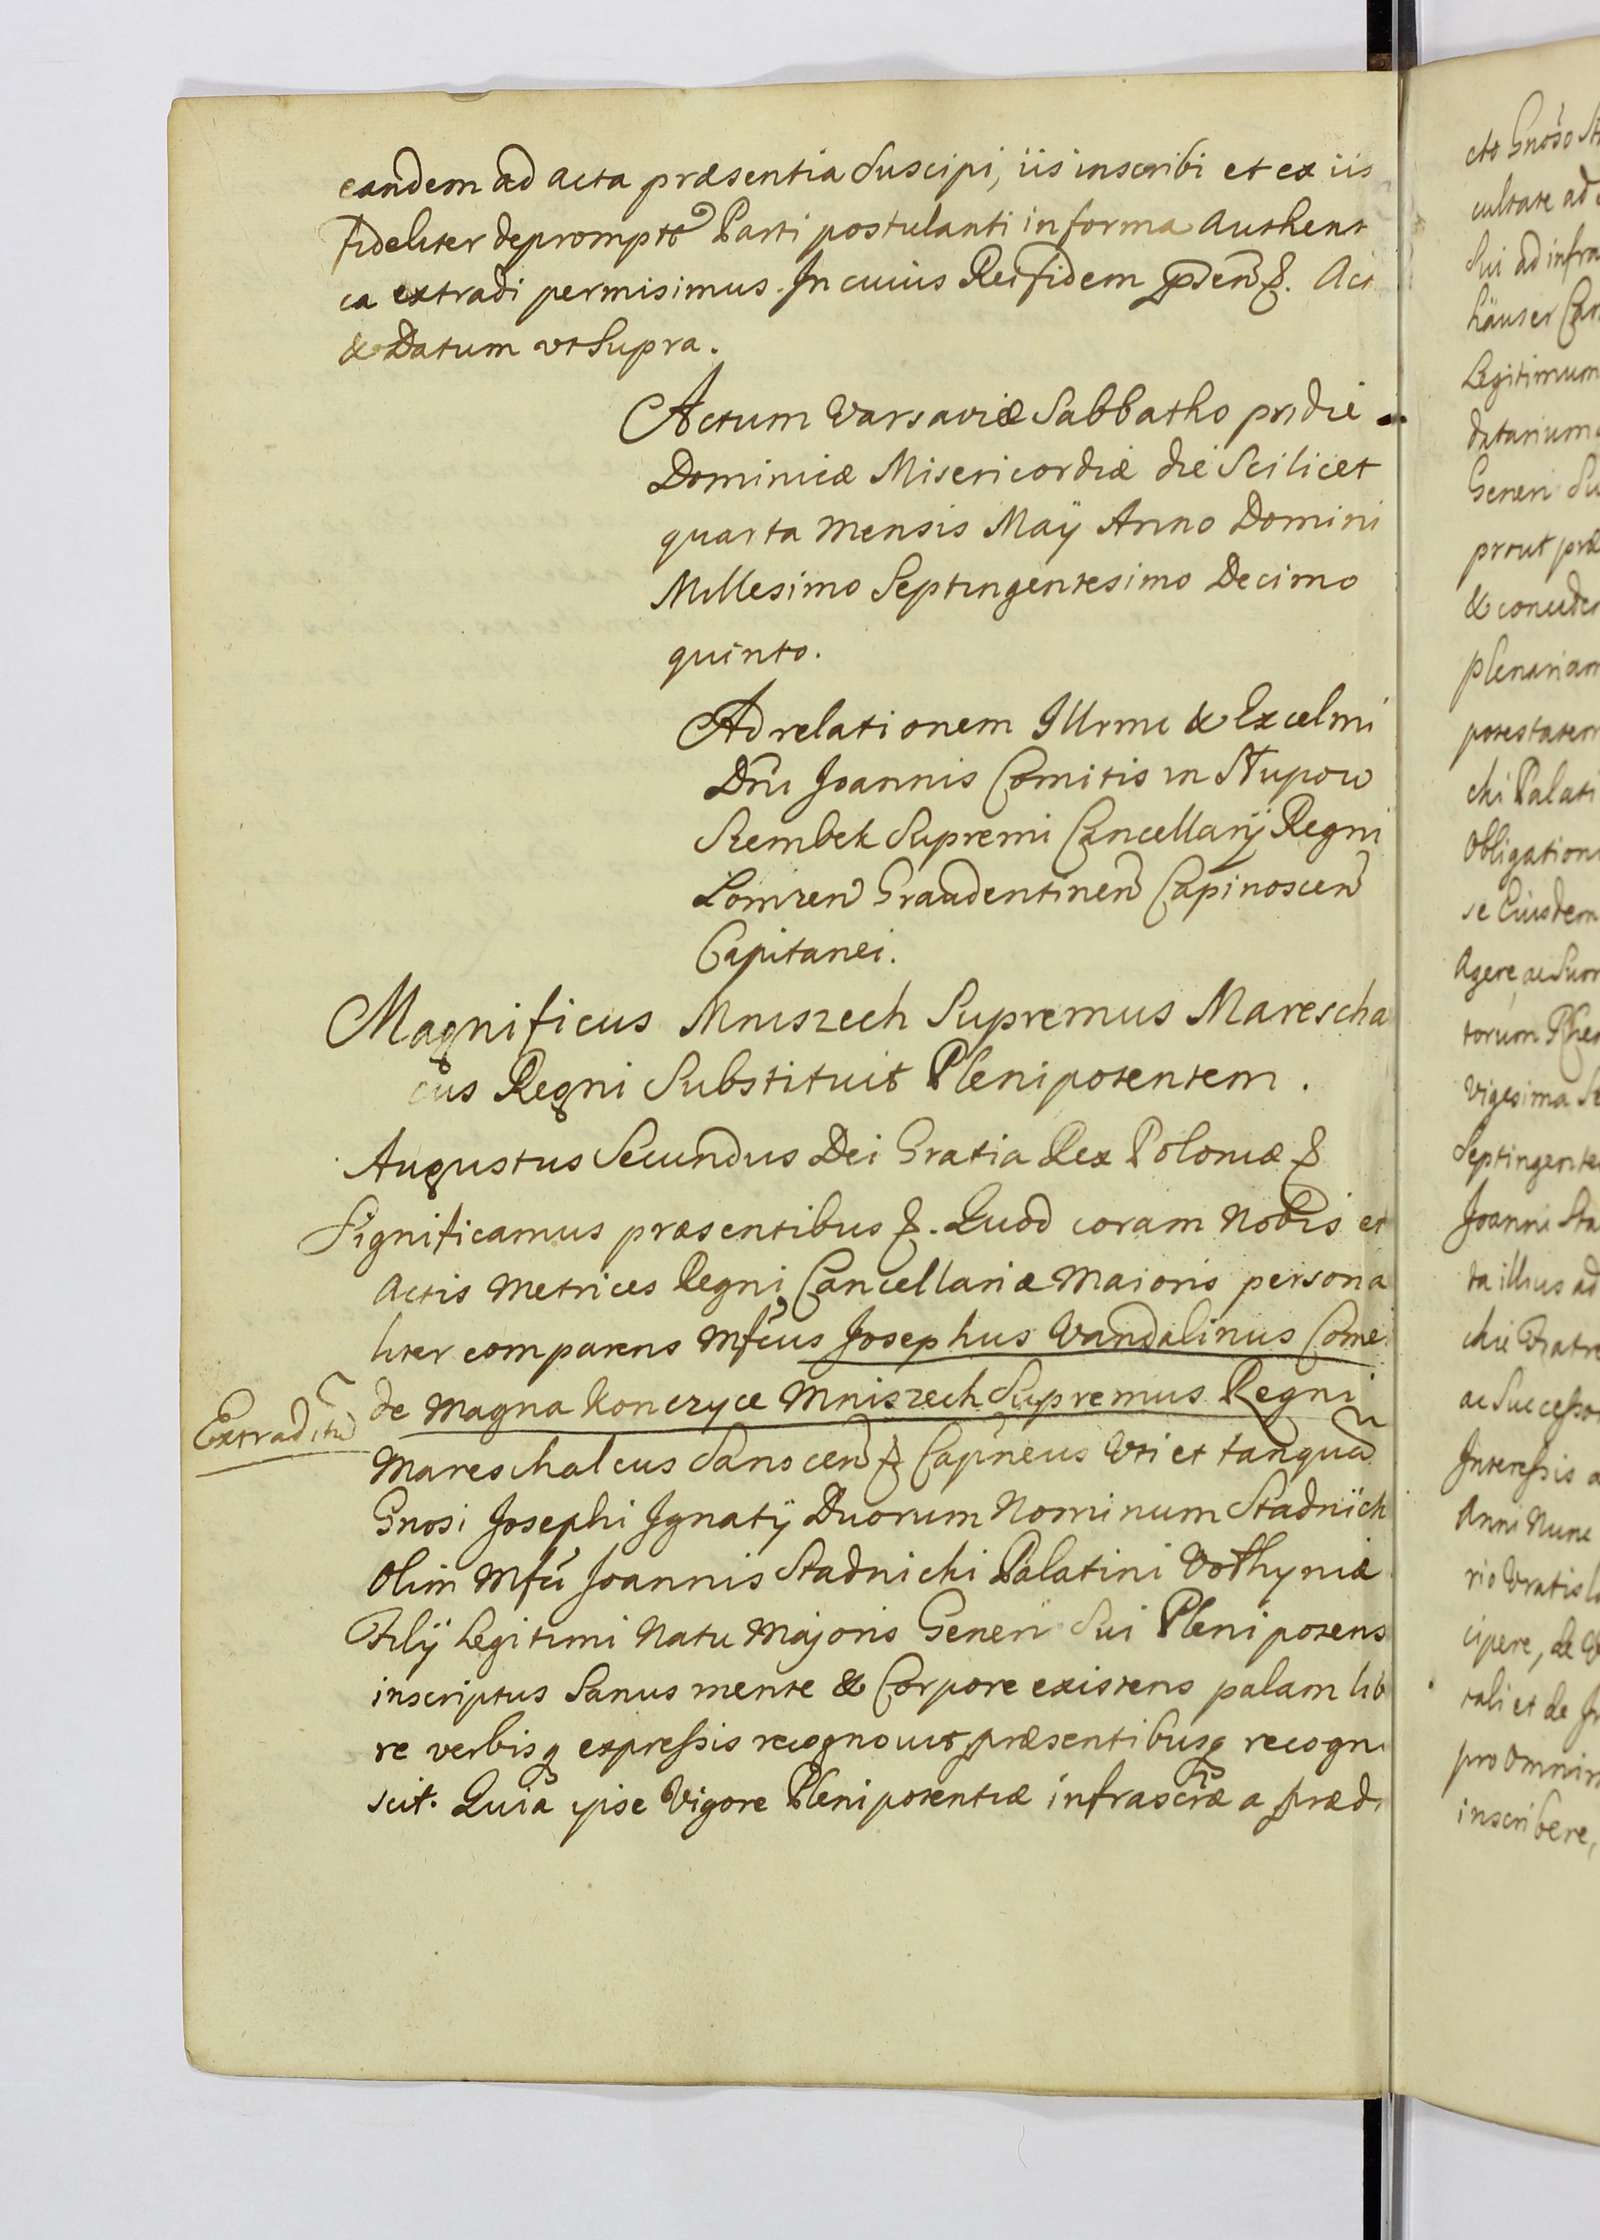 eandem ad acta præsentia suscipi, iis inscribi et ex iis
fideliter depromptã Parti postulanti in forma Authent
ca extradi permisimus. In cuius Rei fidem p̃sen̄ &. Act
& Datum ut Supra.
Actum Varsaviæ Sabbatho pridie
Dominicæ Misericordiæ die Scilicet
quarta mensis Maÿ Anno Domini
Millesimo Septingentesimo Decimo
quinto.
Ad relationem Illrmi & Excelmi
Dñi Joannis Comitis in Słupow
Szembek Supremi Cancellarÿ Regni
Lomzen Graudentinen Capinoscen
Capitanei.
Magnificus Mniszech Supremus Marescha
cus Regni Substituit Plenipotentem.
Augustus Secundus Dei Gratia Rex Poloniæ &
Significamus præsentibus &. Quod coram Nobis et
Actis Metrices Regni Cancellariæ Maioris persona
liter comparens Mfcus Josephus Vandalinus Come
de Magna Konczyce Mniszech Supremus Regni
Extraditũ
Mareschalcus Sanocen & Capneus Uti et tanquã
Gnosi Josephi Ignatÿ Duorum Nominum Stadnich
Olim Mfci Joannis Stadnichi Palatini Volhyniæ
Filÿ Legitimi Natu Majoris Generi Sui Plenipotens
inscriptus Sanus mente & Corpore existens palam lib
re verbisq expressis recognovit præsentibusq recogno
scit. Quia ipse Vigore Plenipotentiæ infrascræ a præd
cto Gnoso St
cultate ad
Sui ad infra
häuser Can
Legitimum
datarium
Generi Su
prout præ
& conceder
plenariam
potestatem
chi Palati
Obligation
se Eiusdem
Agere, ac Suor
torum
Vigesima Se
Septingente
Joanni Sta
ta illius ad
chie Fratre
ac Successo
Interessis a
Anni Nunc
rio Vratisla
cipere, de
tali et de In
pro omnim
inscribere,